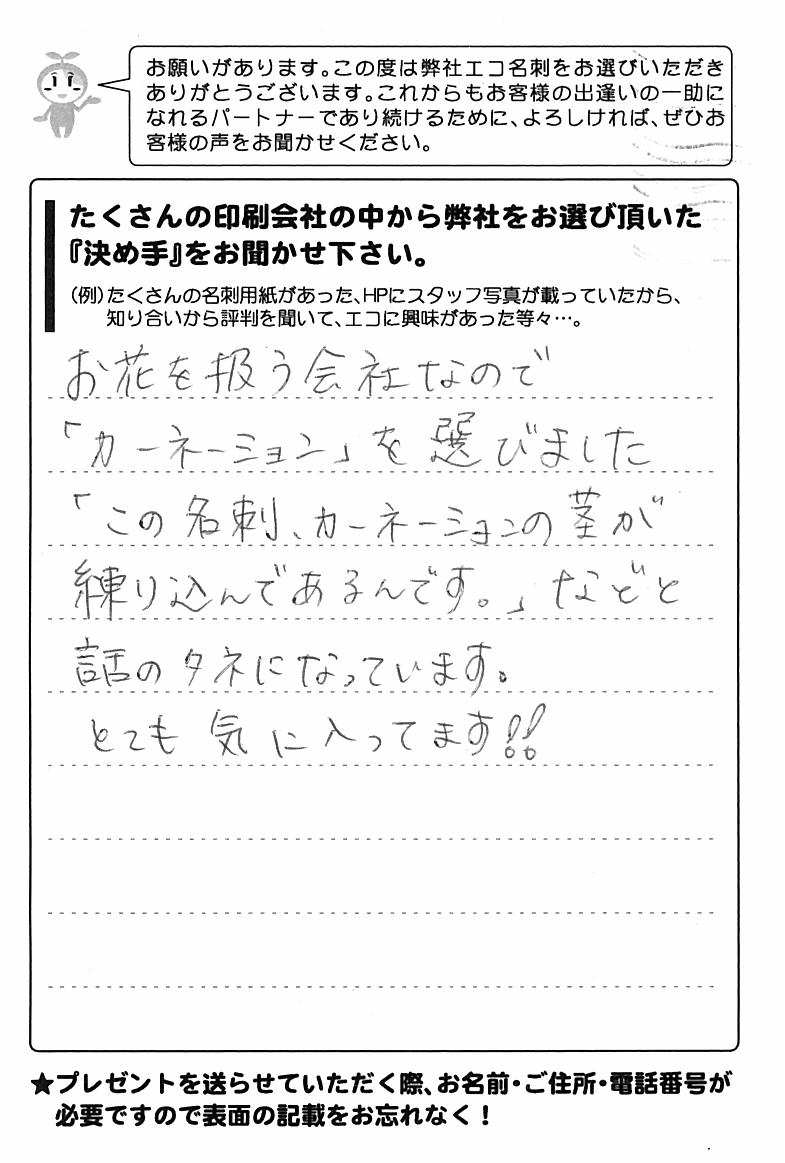 お願いがあります。この度は弊社エコ名刺をお選びいただき
ありがとうございます。これからもお客様の出逢いの一助に
なれるパートナーであり続けるために、よろしければ、ぜひお
客様の声をお聞かせください。
たくさんの印刷会社の中から弊社をお選び頂いた
『決め手』をお聞かせ下さい。
(例)たくさんの名刺用紙があった、HPにスタッフ写真が載っていたから、
知り合いから評判を聞いて、エコに興味があった等々…。
お花を扱う会社なので
「カーネーション」を選びました
「この名刺、カーネーションの茎が
練り込んであるんです。」などと
話のタネになっています。
とても気に入ってます!!
★プレゼントを送らせていただく際、お名前・ご住所・電話番号が
必要ですので表面の記載をお忘れなく!